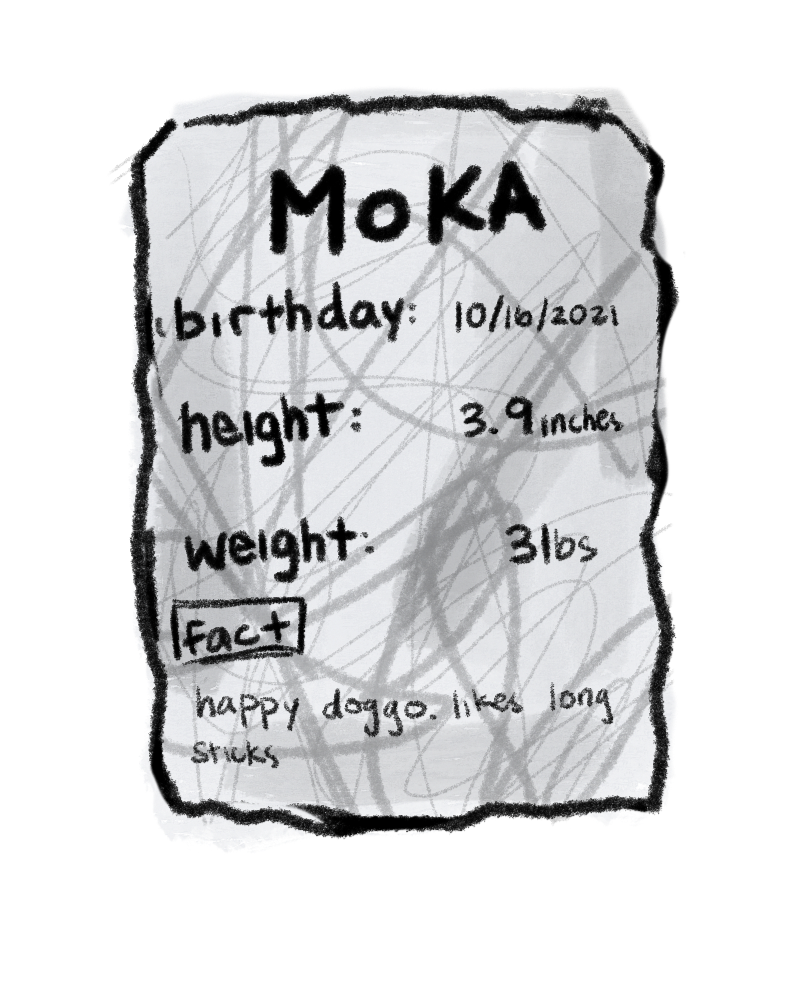 MoKA
birthday: 10/16/2021
height: 3.9 inches
weight: 3lbs
fact
happy doggo. likes long
sticks